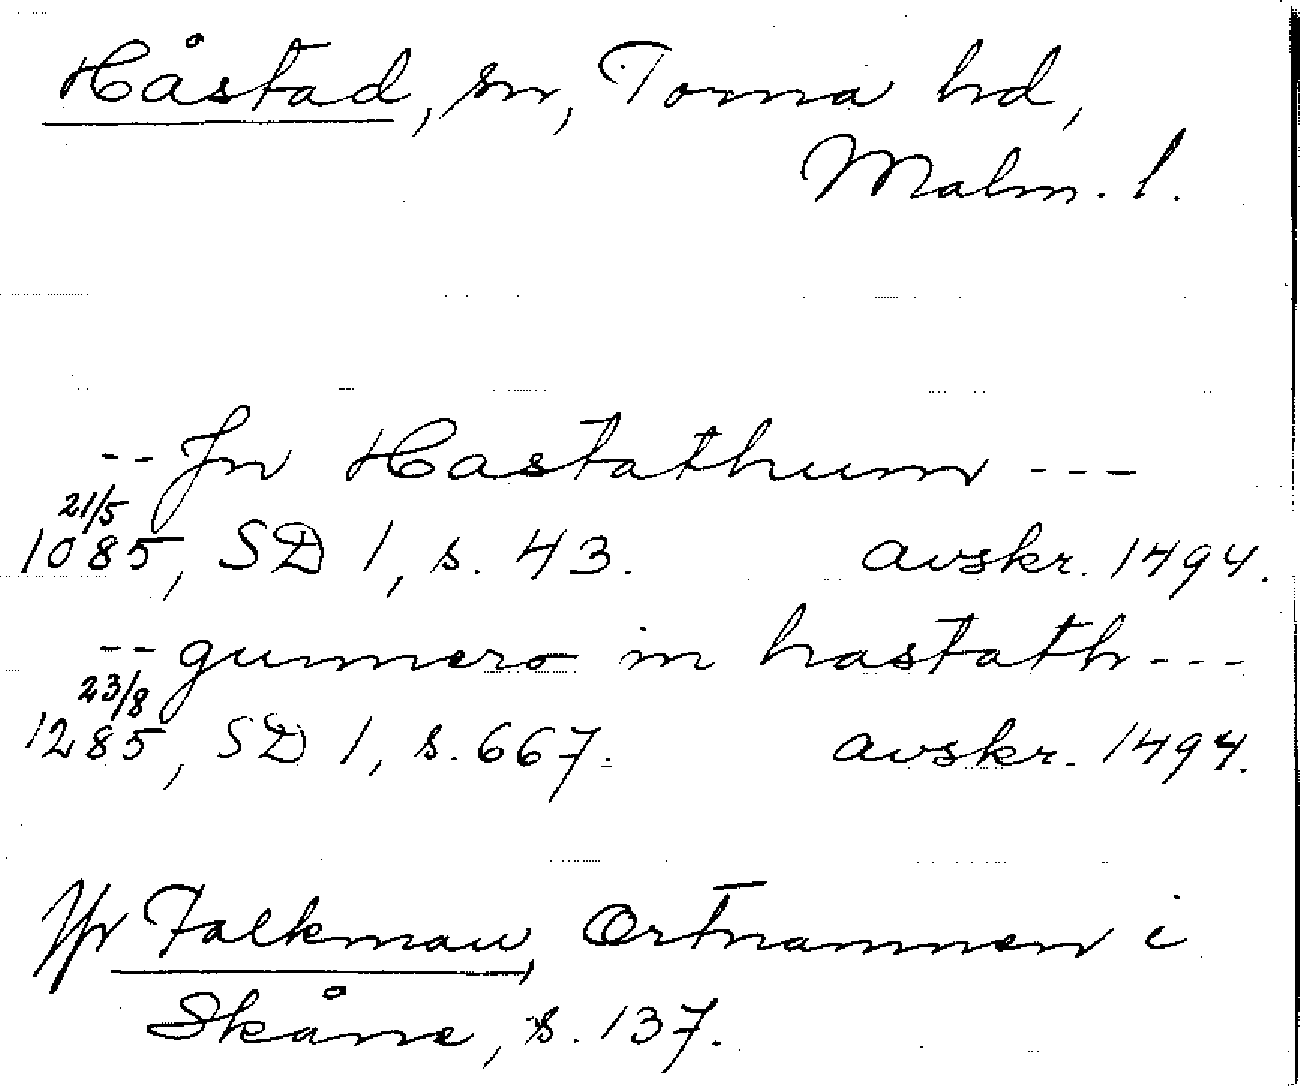 Håstad, sn, Torna hd,
Malm. l.
-- Jn Hastathum ---
21/5
1085, SD 1, s. 43. avskr. 1494.
-- gunnero in hastath ---
23/8
1285, SD 1, s. 667. avskr. 1494.
Jfr Falkman, Ortnamnen i
Skåne, s. 137.